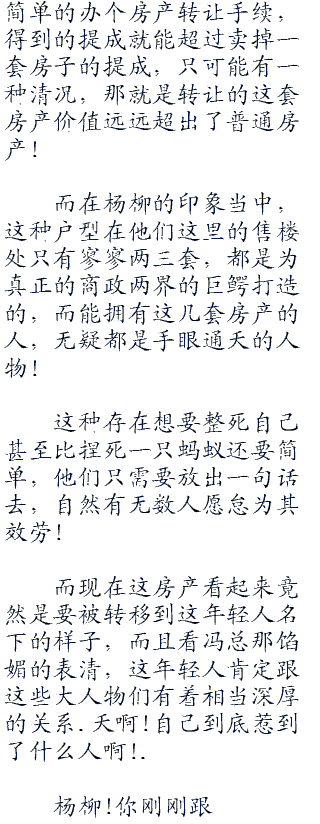 简单的办个房产转让手续，
得到的提成就能超过卖掉一
套房子的提成，只可能有一
种清况，那就是转让的这套
房产价值远远超出了普通房
产！
而在杨柳的印象当中，
这种户型在他们这里的售楼
处只有寥寥两三套，都是为
真正的商政两界的巨鳄打造
的，而能拥有这几套房产的
人，无疑都是手眼通天的人
物！
这种存在想要整死自己
甚至比捏死一只蚂蚁还要简
单，他们只需要放出一句话
去，自然有无数人愿怠为其
效劳！
而现在这房产看起来竟
然是要被转移到这年轻人名
下的样子，而且看冯总那馅
媚的表清，这年轻人肯定跟
这些大人物们有着相当深厚
的关系.天啊!自己到底惹到
了什么人啊!.
杨柳!你刚刚跟